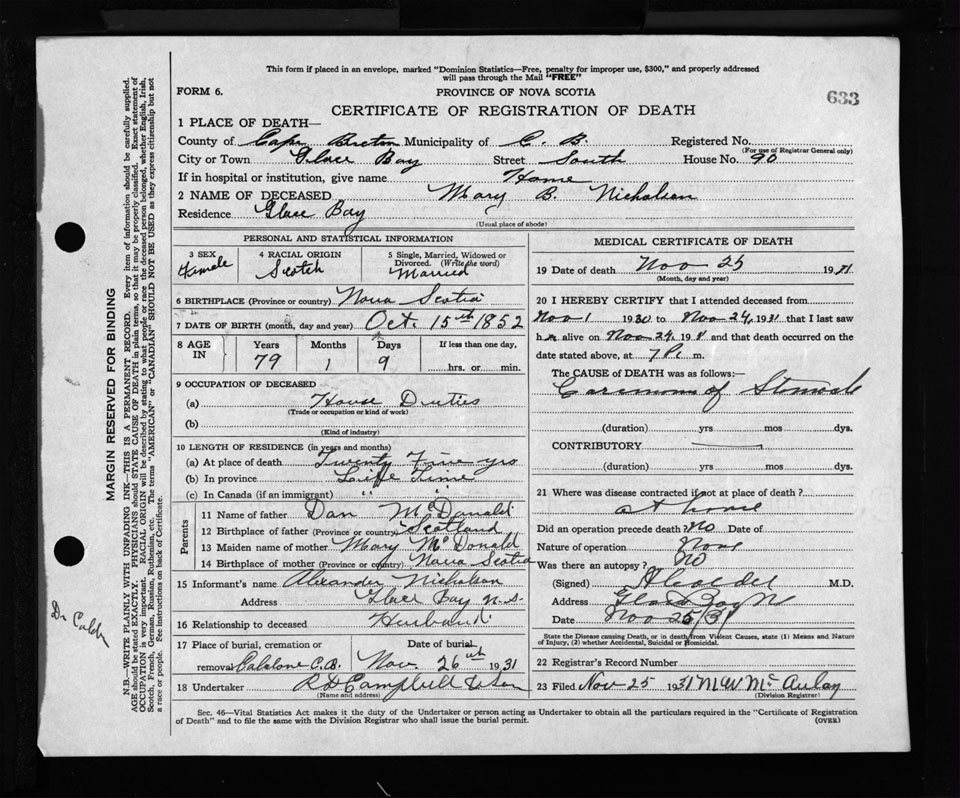 This form if placed in an envelope, marked "Dominion Statistics—Free, penalty for improper use, $300," and properly addressed
will pass through the Mail "FREE"
FORM 6. PROVINCE OF NOVA SCOTIA 633
CERTIFICATE OF REGISTRATION OF DEATH
1 PLACE OF DEATH—
County of Cape Breton Municipality of C. B. Registered No.
(For use of Registrar General only)
City or Town Glace Bay Street South House No. 90
If in hospital or institution, give name Home
2 NAME OF DECEASED Mary B. Nicholson
Residence Glace Bay
(Usual place of abode)
PERSONAL AND STATISTICAL INFORMATION
3 SEX 4 RACIAL ORIGIN 5 Single, Married, Widowed or
Divorced. (Write the word)
Female Scotch Married
6 BIRTHPLACE (Province or country) Nova Scotia
7 DATE OF BIRTH (month, day and year) Oct. 15th 1852
8 AGE IN Years Months Days If less than one day,
79 1 9 hrs. or min.
9 OCCUPATION OF DECEASED
(a) House Duties
(Trade or occupation or kind of work)
(b)
(Kind of industry)
10 LENGTH OF RESIDENCE (in years and months)
(a) At place of death Twenty Five yrs
(b) In province Life Time
(c) In Canada (if an immigrant) " "
Parents
11 Name of father Dan McDonald
12 Birthplace of father (Province or country) Scotland
13 Maiden name of mother Mary McDonald
14 Birthplace of mother (Province or country) Nova Scotia
15 Informant's name Alexander Nicholson
Address Glace Bay N.S.
16 Relationship to deceased Husband
17 Place of burial, cremation or Date of burial
removal C.B. Nov. 26th 1931
18 Undertaker R D Campbell & Son
(Name and address)
MEDICAL CERTIFICATE OF DEATH
19 Date of death Nov 25 1931
(Month, day and year)
20 I HEREBY CERTIFY that I attended deceased from
Nov 1 1930 to Nov 24, 1931 that I last saw
her alive on Nov 24, 1931 and that death occurred on the
date stated above, at 7 P. m.
The CAUSE OF DEATH was as follows:—
Carcinoma of Stomach
(duration) yrs mos dys.
CONTRIBUTORY
(duration) yrs mos dys.
21 Where was disease contracted if not at place of death?
at home
Did an operation precede death? no Date of
Nature of operation None
Was there an autopsy? No
(Signed) M.D.
Address Glace Bay N
Date Nov 25/31
State the Disease causing Death, or in death from Violent Causes, state (1) Means and Nature
of Injury, (2) whether Accidental, Suicidal or Homicidal.
22 Registrar's Record Number
23 Filed Nov 25 1931 M W McAulay
(Division Registrar)
Sec. 46—Vital Statistics Act makes it the duty of the Undertaker or person acting as Undertaker to obtain all the particulars required in the "Certificate of Registration
of Death" and to file the same with the Division Registrar who shall issue the burial permit. (OVER)
MARGIN RESERVED FOR BINDING
N.B.—WRITE PLAINLY WITH UNFADING INK—THIS IS A PERMANENT RECORD. Every item of information should be carefully supplied.
AGE should be stated EXACTLY. PHYSICIANS should STATE CAUSE OF DEATH in plain terms, so that it may be properly classified. Exact statement of
OCCUPATION is very important. RACIAL ORIGIN will be described by stating to what people or race the deceased person belonged, whether English, Irish,
Scotch, French, German, Russian, Ruthenian, etc. The terms "AMERICAN" or "CANADIAN" SHOULD NOT BE USED as they express citizenship but not
a race or people. See instructions on back of Certificate.
Dr Calder